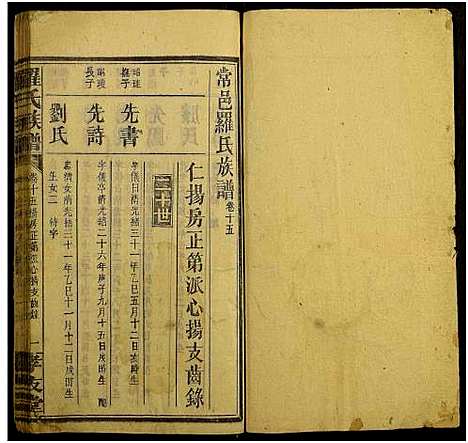 常邑羅氏族譜 卷十五
仁揚房正第派心揚支齒錄
二十世
撫子
先書
字儀日清光緒三十一年乙巳五月十二日亥時生
長子
先詩
字儀亭清光緒二十六年庚子九月十五日戌時生
劉氏
清光緒三十一年乙巳十一月十二日戌時生
生女二 待字
羅氏族譜
卷十五 揚房正第派心揚支齒錄
一
孝友堂